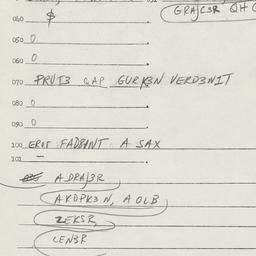 GRAJC3R QH
040 $
050 0
060 0
070 PRUT3 GAP GURK3N VERD3NIT
080 0
090 0
100 EROF FADPANT A SAX
102 –
ADRAJ3R
AKDPK3N, A OLB
ZEKSR,
CEN3R